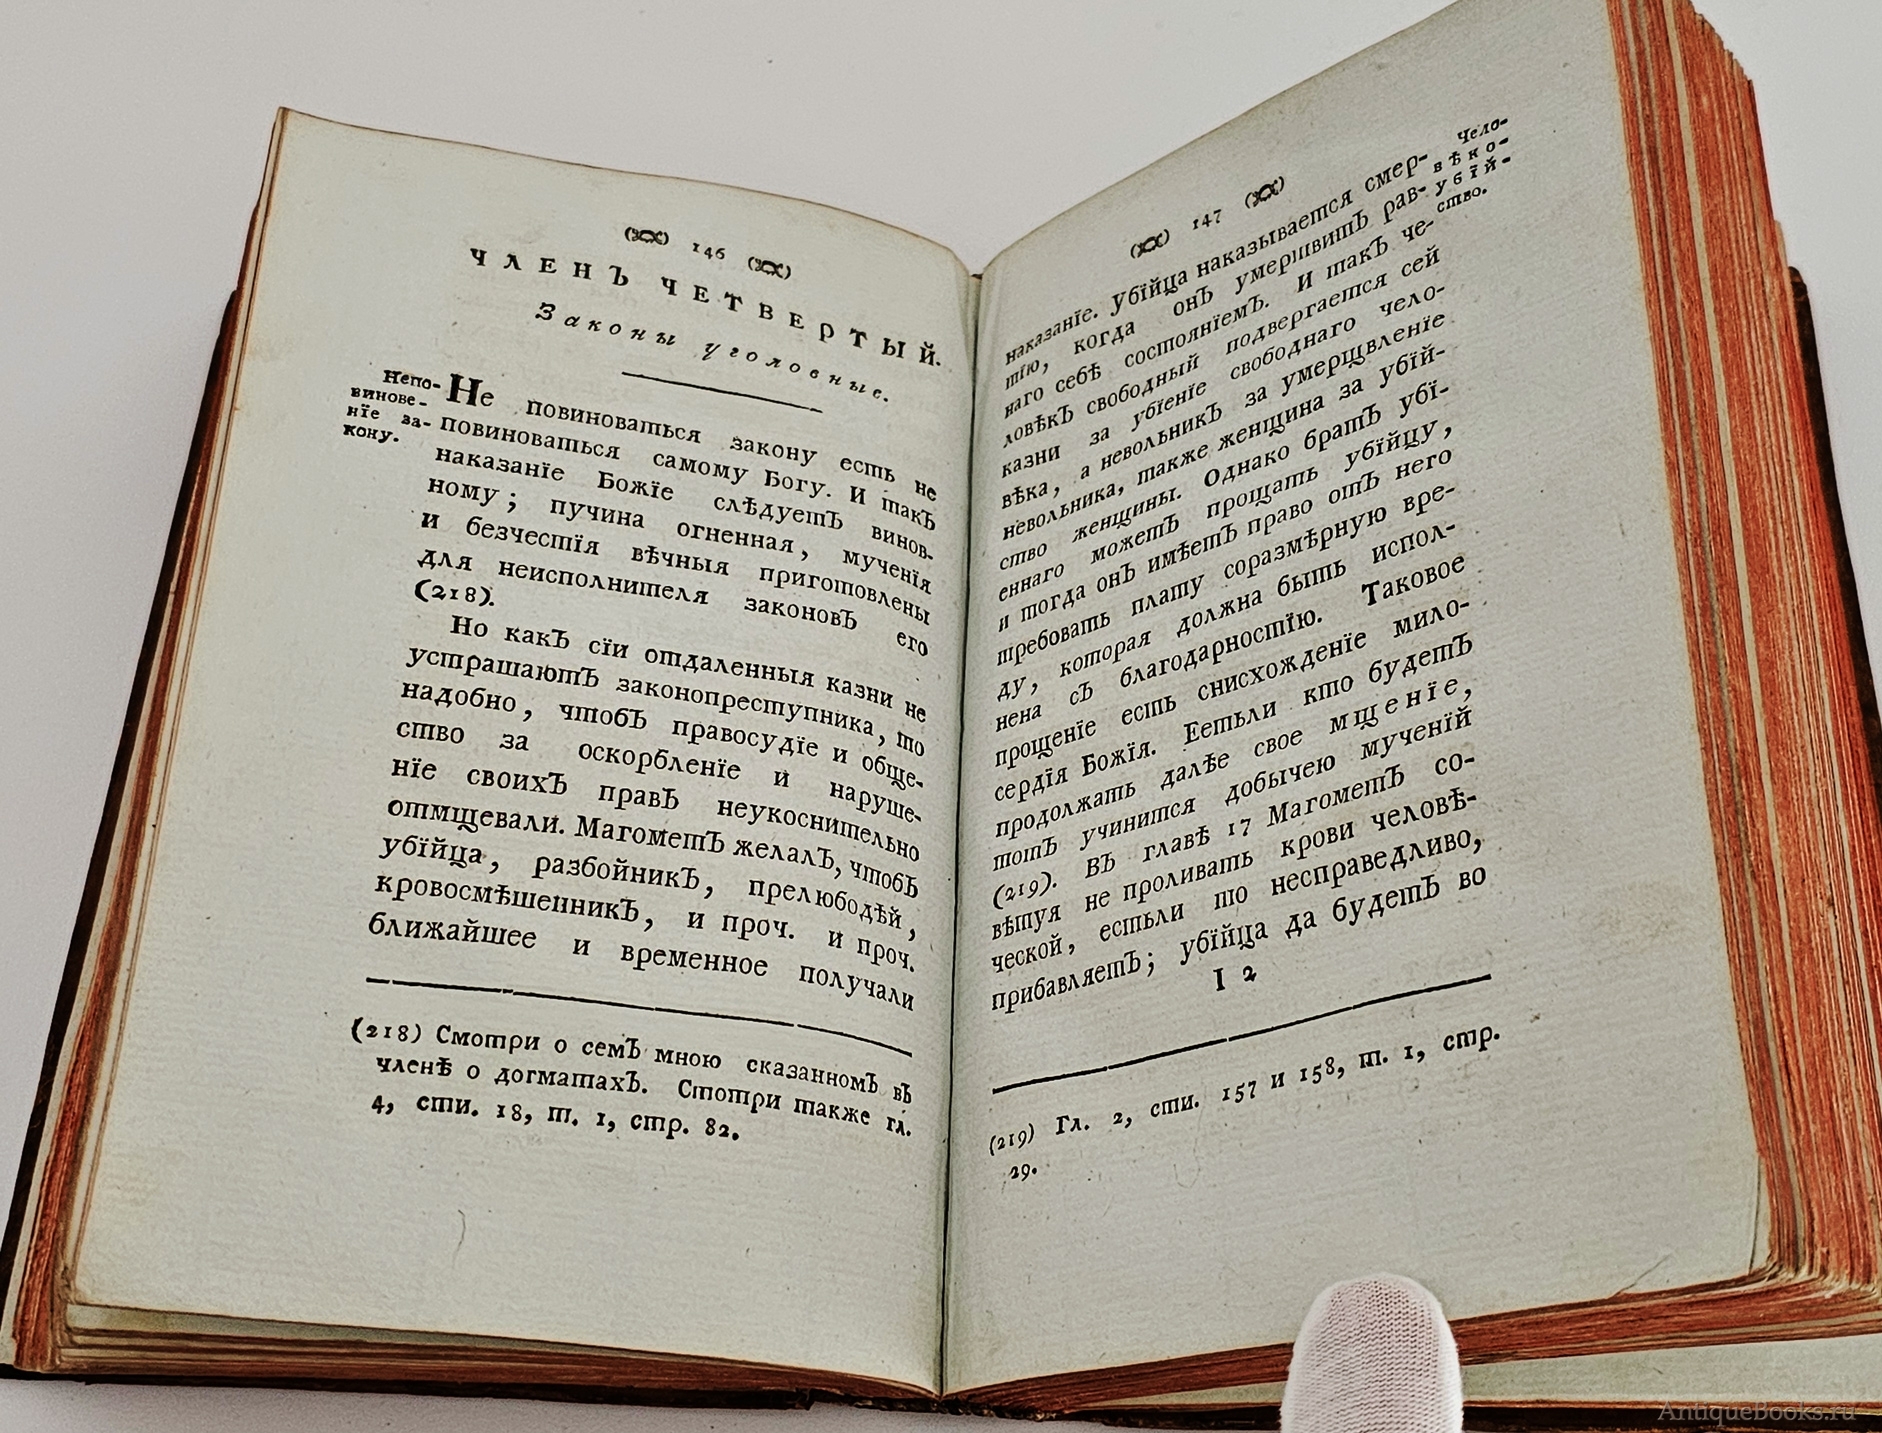 146
ЧЛЕНЪ ЧЕТВЕРТЫЙ.
Законы уголовные.
Непо-
винове-
нїе за-
кону.
Не повиноваться закону есть не
повиноваться самому Богу. И такъ
наказанїе Божїе слѣдуетъ винов-
ному; пучина огненная, мученїя
и безчестїя вѣчныя приготовлены
для неисполнителя законовъ его
(218).
Но какъ сїи отдаленныя казни не
устрашаютъ законопреступника, то
надобно, чтобъ правосудїе и обще-
ство за оскорбленїе и наруше-
нїе своихъ правъ неукоснительно
отмщевали. Магометъ желалъ, чтобъ
убїйца, разбойникъ, прелюбодѣй,
кровосмѣшенникъ, и проч. и проч.
ближайшее и временное получали
(218) Смотри о семъ мною сказанномъ въ
членѣ о догматахъ. Стотри также гл.
4, сти. 18, т. 1, стр. 82.
147
Чело-
вѣко-
убїй-
ство.
наказанїе. Убїйца наказывается смер-
тїю, когда онъ умертвитъ рав-
наго себѣ состоянїемъ. И такъ че-
ловѣкъ свободный подвергается сей
казни за убїенїе свободнаго чело-
вѣка, а невольникъ за умерщвленїе
невольника, также женщина за убїй-
ство женщины. Однако братъ убї-
еннаго можетъ прощать убїйцу,
и тогда онъ имѣетъ право отъ него
требовать плату соразмѣрную вре-
ду, которая должна быть испол-
нена съ благодарностїю. Таковое
прощенїе есть снисхожденїе мило-
сердїя Божїя. Еетьли кто будетъ
продолжать далѣе свое мщенїе,
тотъ учинится добычею мученїй
(219). Въ главѣ 17 Магометъ со-
вѣтуя не проливать крови человѣ-
ческой, естьли то несправедливо,
прибавляетъ; убїйца да будетъ во
I 2
(219) Гл. 2, сти. 157 и 158, т. 1, стр.
29.
AntiqueBooks.ru